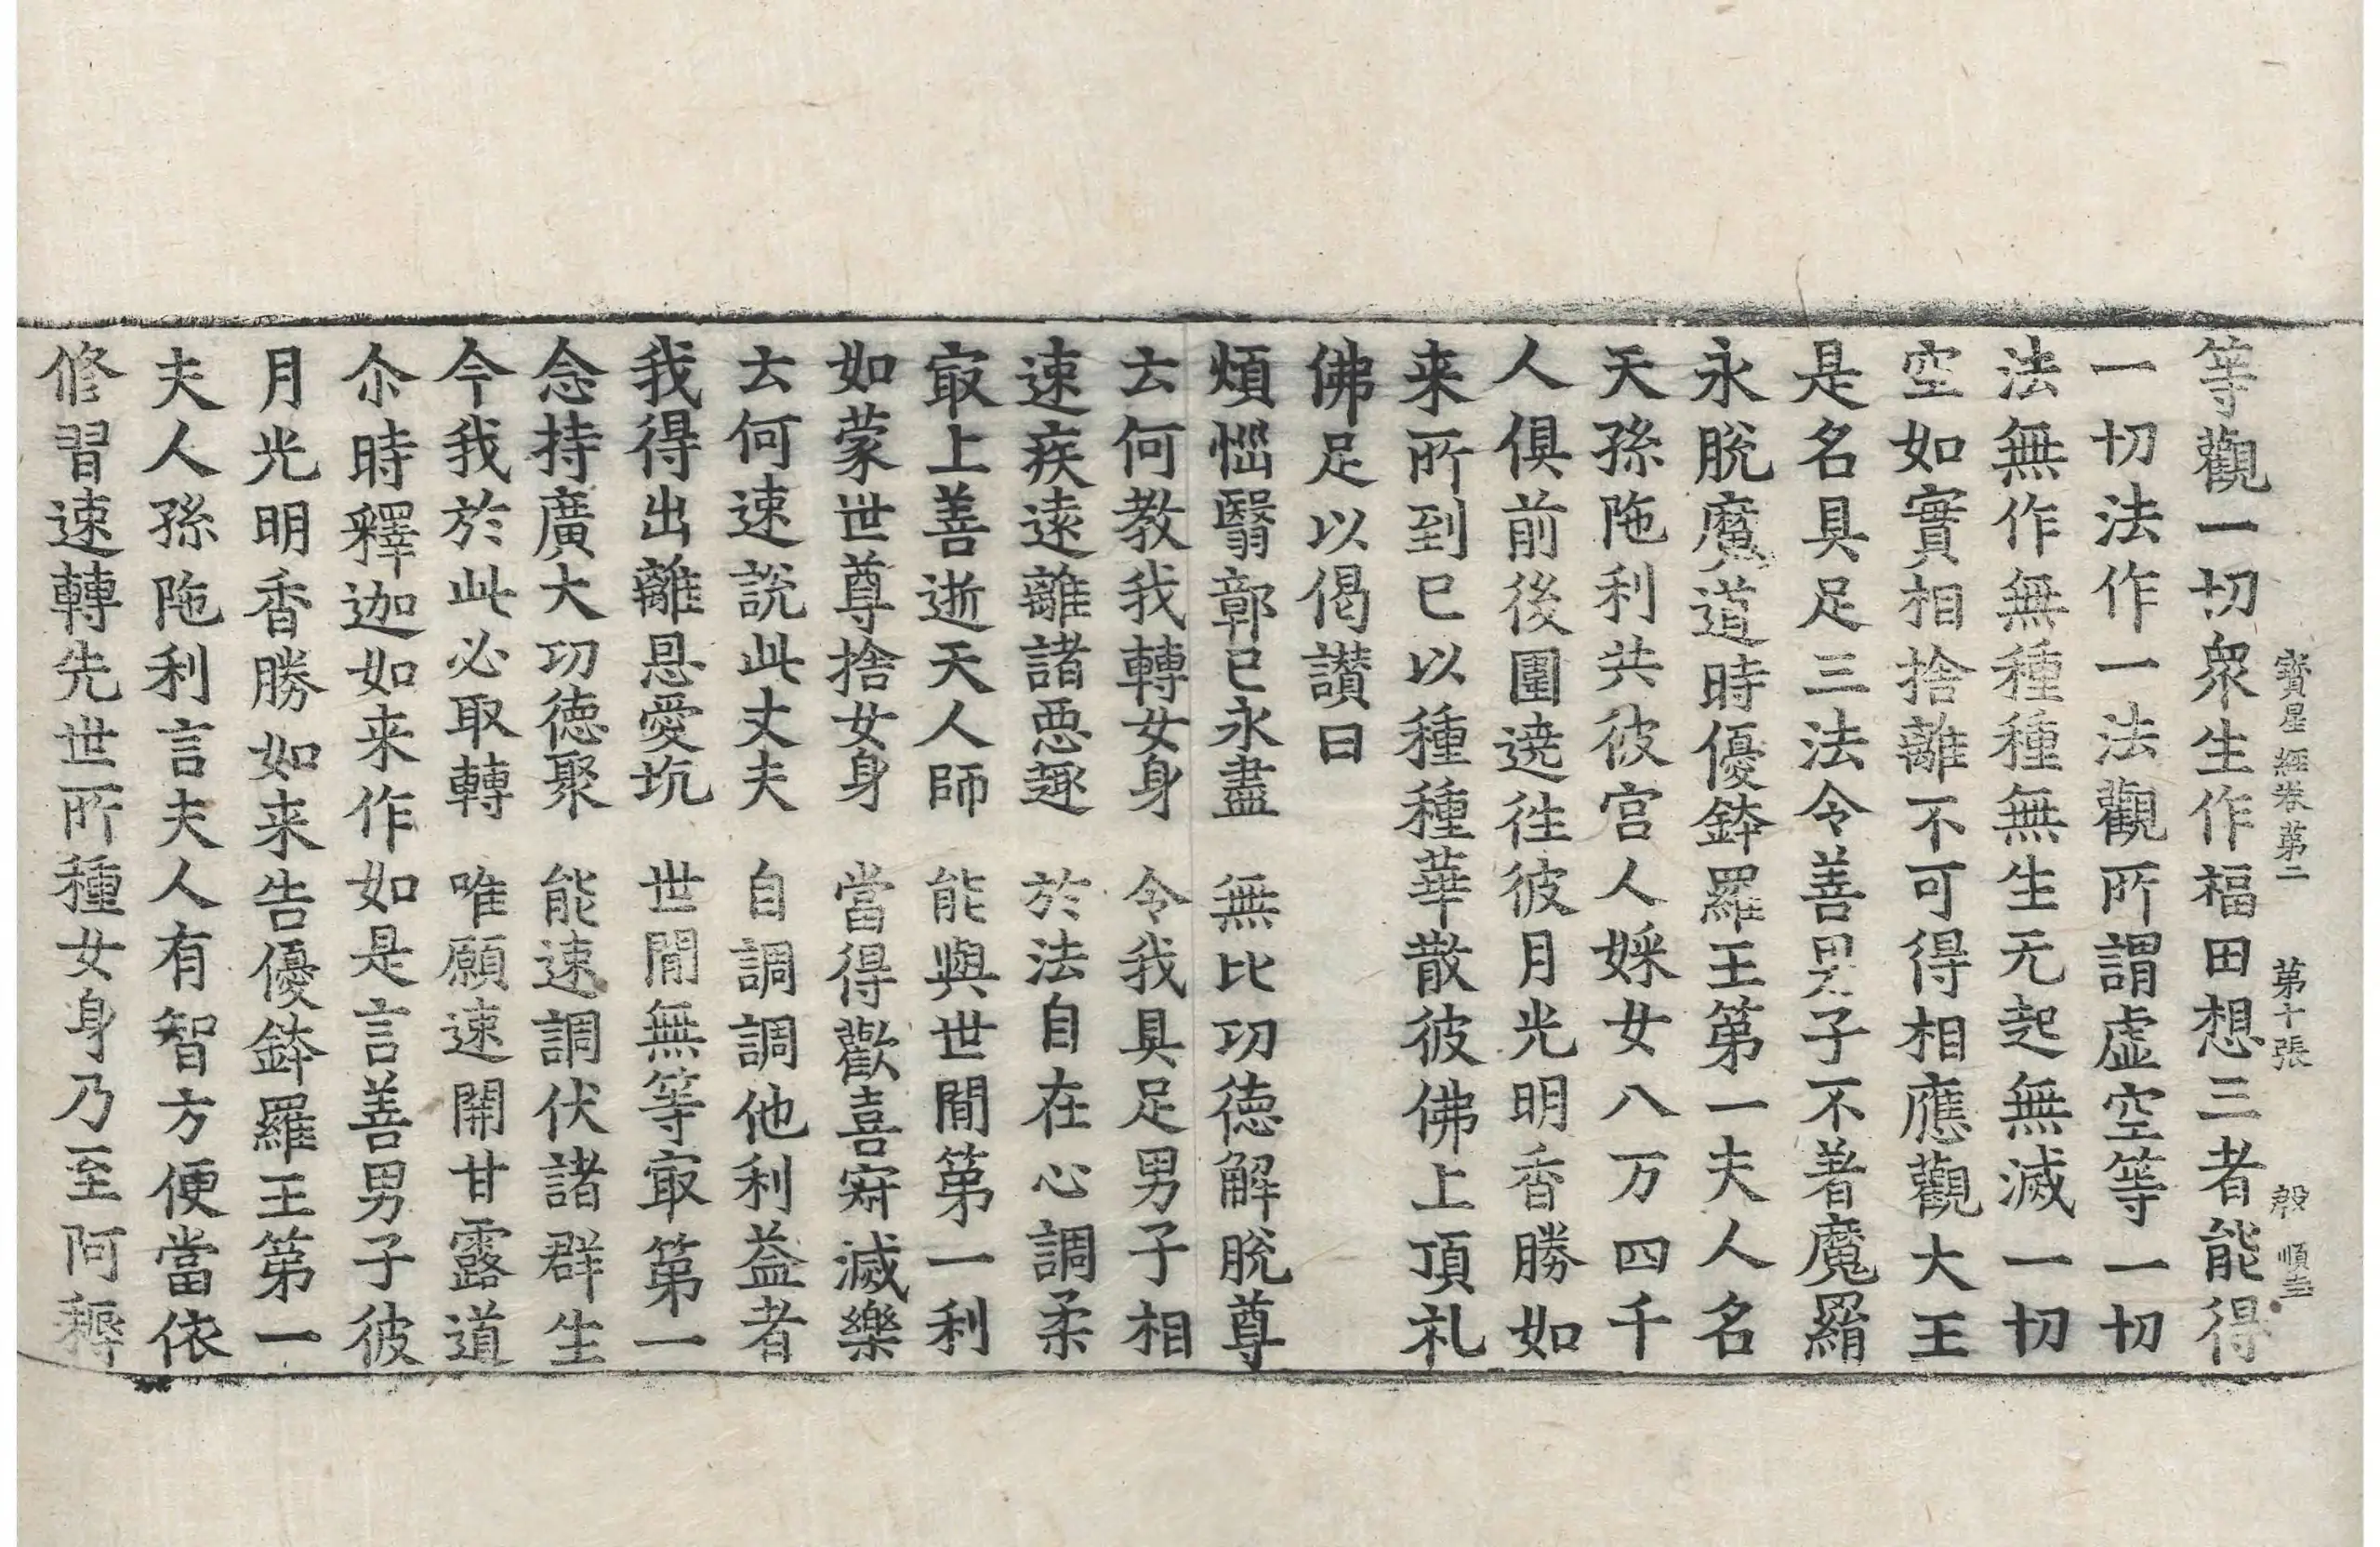 寳星經卷第二 第十張 殸 順圭
等觀一切衆生作福田想三者能得
一切法作一法觀所謂虛空等一切
法無作無種種無生无起無滅一切
空如實相捨離不可得相應觀大王
是名具足三法令善男子不著魔羂
永脫魔道時優鉢羅王第一夫人名
天孫陁利共彼宫人婇女八万四千
人俱前後圍遶徃彼月光明香勝如
来所到已以種種華散彼佛上頂礼
佛足以偈讃曰
煩惱翳鄣已永盡 無比功徳解脫尊
云何教我轉女身 令我具足男子相
速疾遠離諸惡趣 於法自在心調柔
㝡上善逝天人師 能與世閒第一利
如蒙世尊捨女身 當得歡喜㝛滅樂
云何速說此丈夫 自調調他利益者
我得出離恩愛坑 世閒無等㝡第一
念持廣大功徳聚 能速調伏諸群生
今我於此必取轉 唯願速開甘露道
尒時釋迦如来作如是言善男子彼
月光明香勝如来告優鉢羅王第一
夫人孫陁利言夫人有智方便當依
修習速轉先世所種女身乃至阿耨